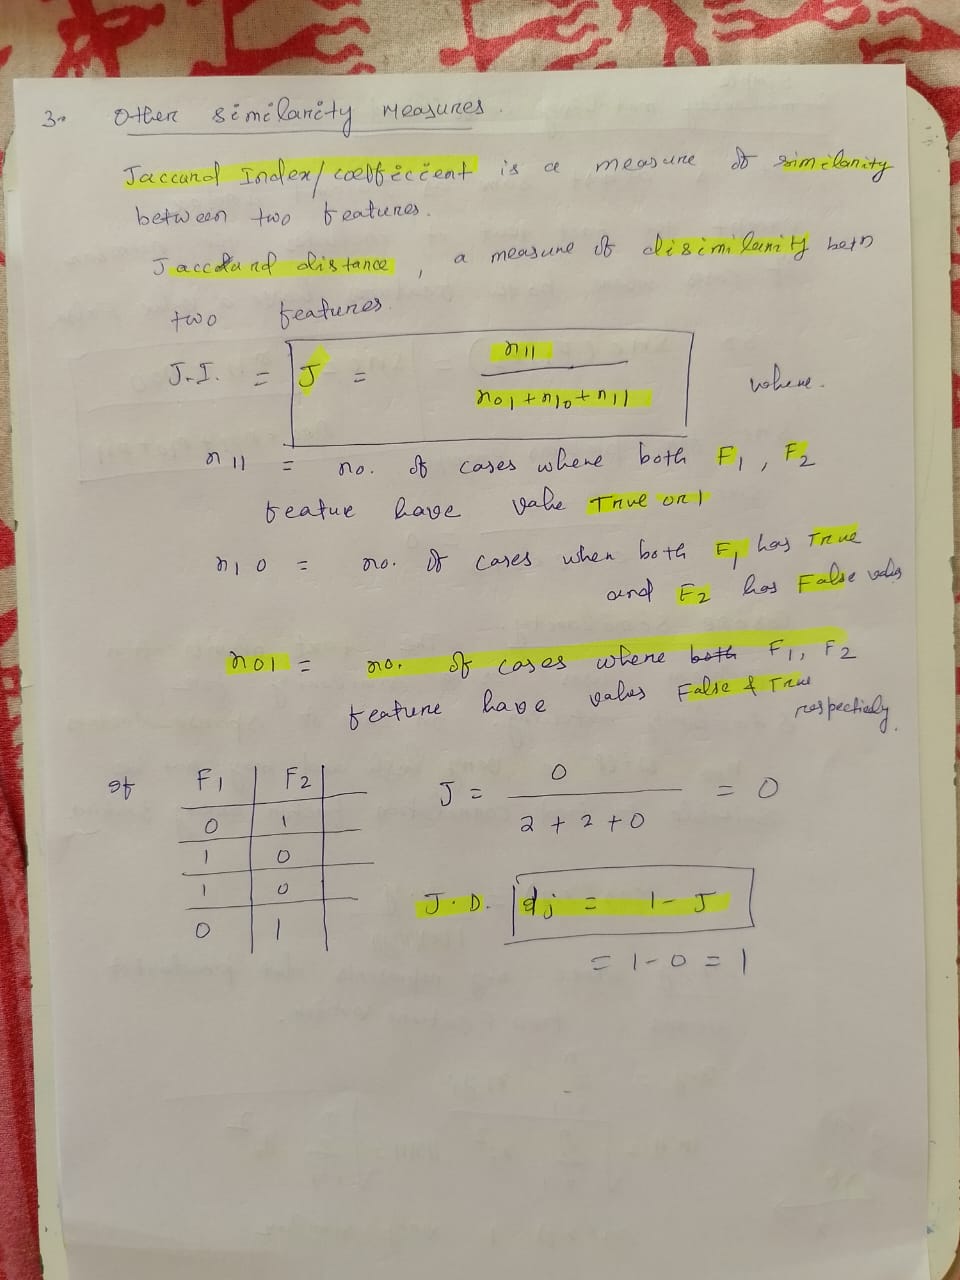 3. Other similarity Measures.
Jaccard Index/coefficient is a measure of similarity
between two features.
Jaccard distance, a measure of disimilarity betn
two features.
J.I. = J = n11 / n01 + n10 + n11 where.
n11 = no. of cases where both F1, F2
feature have value True or 1
n10 = no. of cases when both F1 has True
and F2 has False
n01 = no. of cases where both F1, F2
feature have values False & True
respectively.
If F1 F2 J = 0 / 2 + 2 + 0 = 0
0 1
1 0
1 0
0 1
J.D. dj = 1 - J
= 1 - 0 = 1